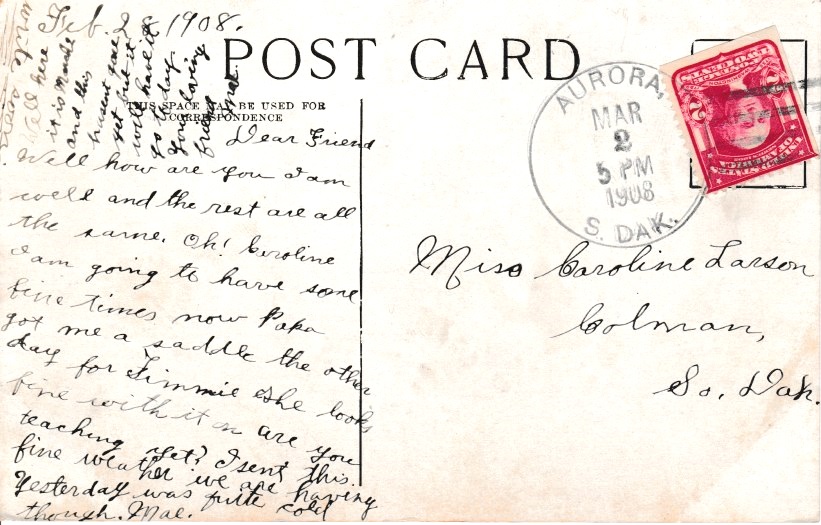 Feb. 28 1908.
POST CARD
THIS SPACE MAY BE USED FOR
CORRESPONDENCE
Dear Friend
Well how are you I am
well and the rest are all
the same. Oh! Caroline
I am going to have some
fine times now Papa
got me a saddle the other
day for Jimmie she looks
fine with it on are you
teaching yet? I sent this.
fine weather we are having
Yesterday was quite cold
though. Mae.
write soon
Well here
it is made
and this
present
yet but it
will have to
go to day.
Your loving
friend
Mae.
AURORA,
MAR
2
5 PM
1908
S. DAK.
2
Miss Caroline Larson
Colman,
So. Dak.